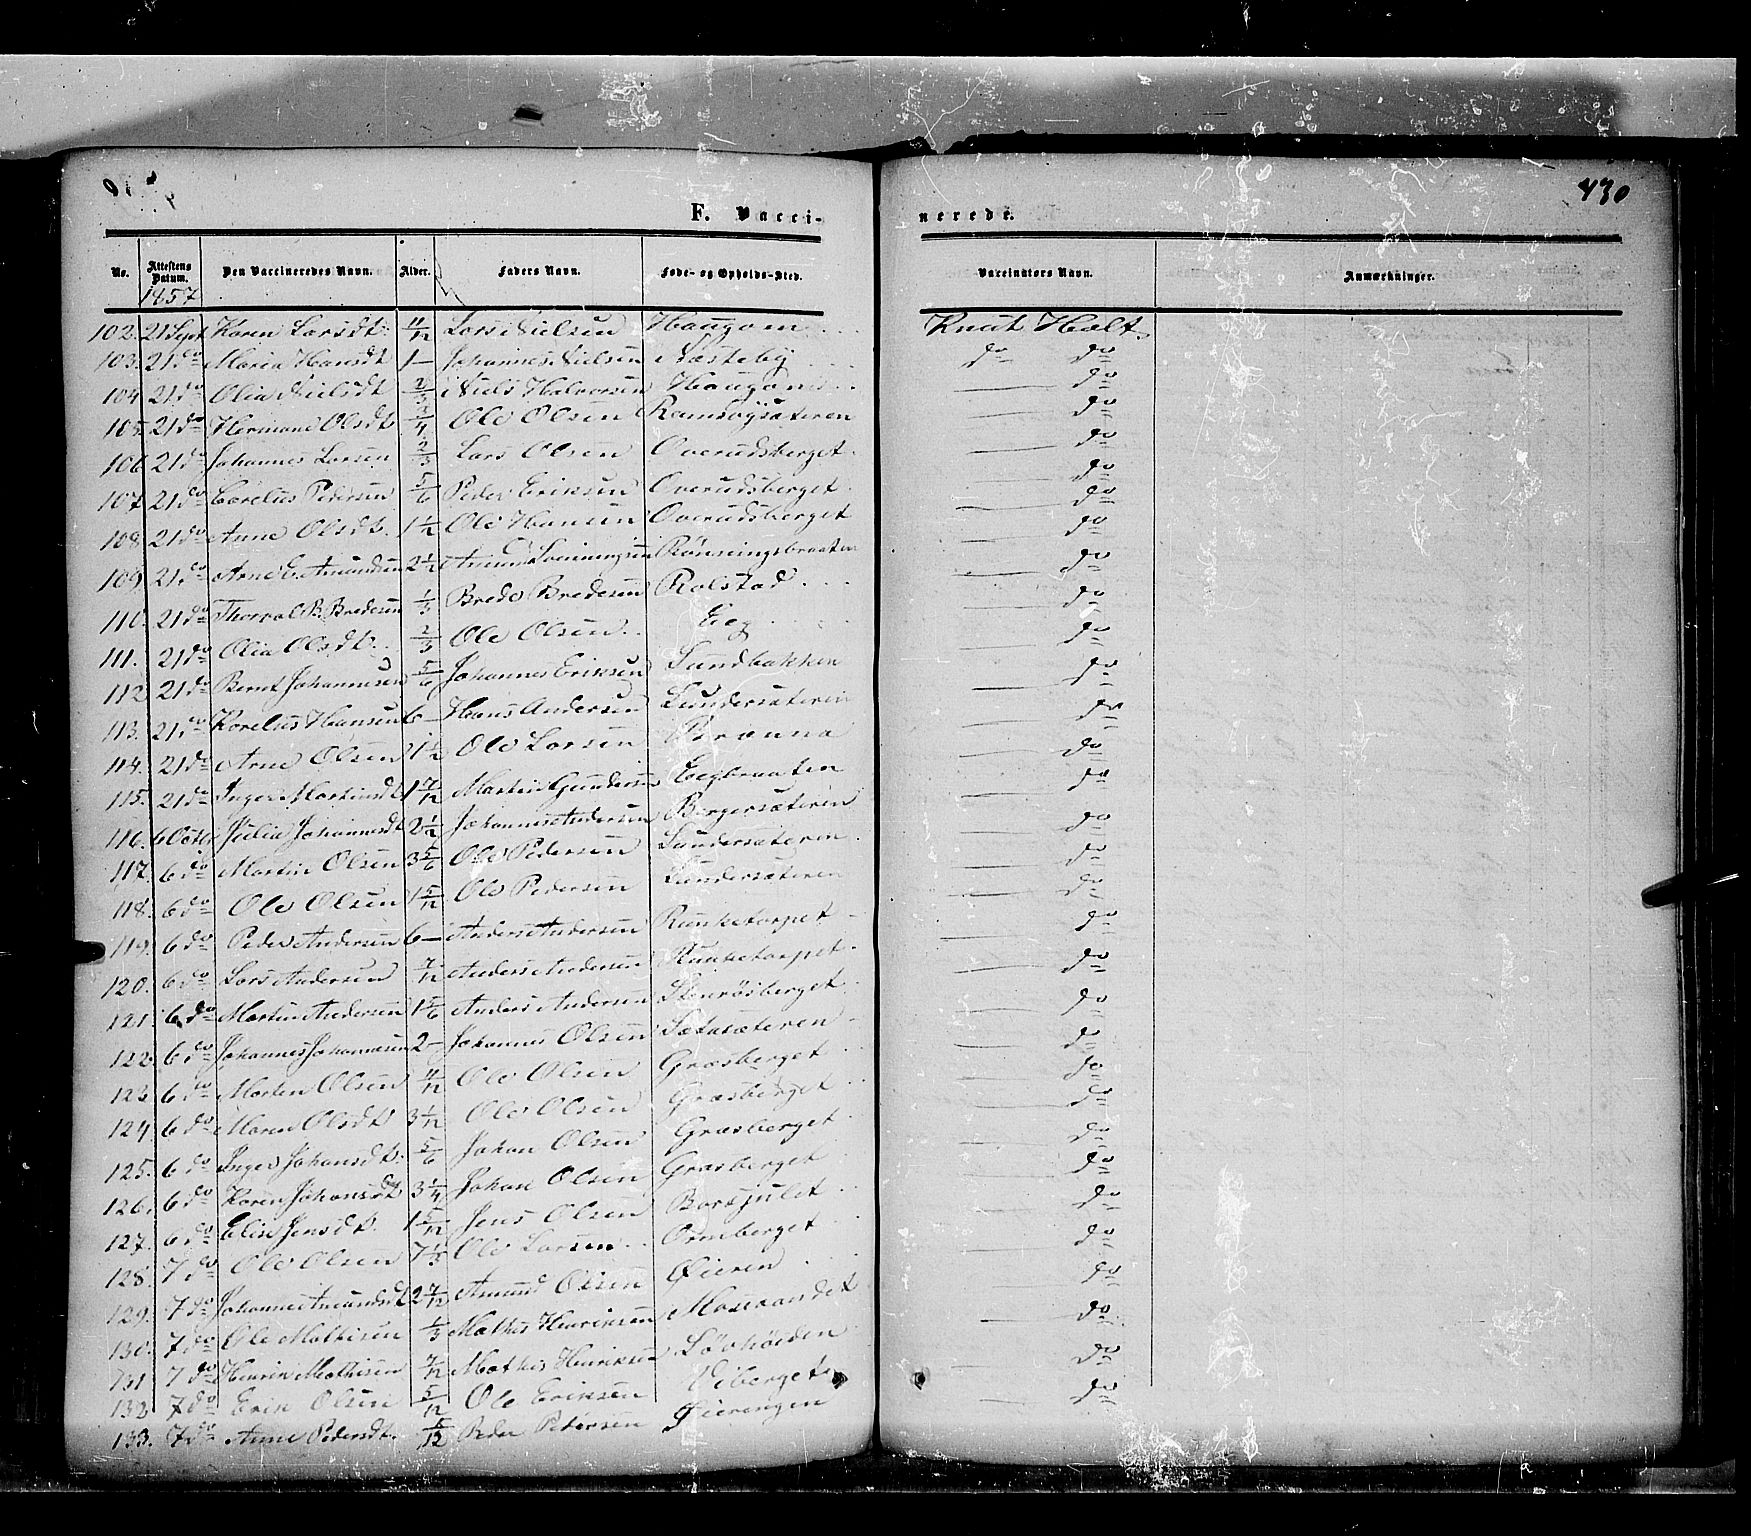 430
F. Vacci- nerede.
No. Attestens Datum. Den Vaccineredes Navn. Alder. Faders Navn. Føde- og Opholds-Sted. Vaccinators Navn. Anmærkninger.
1857
102. 21 Sept Karen Larsdt. 11/12 Lars Nielsen Haugom Knut Holt
103. 21 do Maria Hansdt 1 - Johannes Nielsen Næsteby do do
104 21 do Olia Nielsdt 2/3 Niels Halvorsen Haugom do
105. 21 do Hermane Olsdt 3/4 Ole Olsen Ramsøysæteren do
106 21 do Johannes Larsen 2/3 Lars Olsen Overudsberget do
107. 21 do Corelius Pedersen 5/6 Peder Eriksen Overudsberget do
108. 21 do Anne Olsdt. 1 1/2 Ole Hansen Overudsberget do
109. 21 do Arne E. Amundsen 2 1/2 Amund Rønningsbraaten do
110. 21 do Thorval B. Bredesen 1/3 Brede Bredesen Rolstad do
111. 21 do Olia Olsdt. 2/3 Ole Olsen Eeg do
112 21 do Bernt Johannesen 5/6 Johannes Eriksen Sundbakken do
113. 21 do Korelius Hansen 6 - Hans Andersen Lundersæteren do
114. 21 do Arne Olsen 1 1/2 Ole Larsen Brænna do
115. 21 do Inger Martinsdt 1 7/12 Martin Gundersen Eegbraaten do
116. 6 Octbr Julia Johannesdt 2 1/2 Johannes Andersen Bergersæteren do
117. 6 do Martin Olsen 3 5/6 Ole Pedersen Lundersæteren do
118. 6 do Ole Olsen 1 5/12 Ole Pedersen Lundersæteren do
119. 6 do Peder Andersen 6 - Anders Andersen Runketorpet do
120. 6 do Lars Andersen 7/12 Anders Andersen Runketorpet do
121. 6 do Martin Andersen 1 5/6 Anders Andersen Stenrøsberget do
122. 6 do Johannes Johannesen 2 - Johannes Olsen Sætasæteren do
123. 6 do Morten Olsen 11/12 Ole Olsen Græsberget do
124. 6 do Maren Olsdt 3 1/2 Ole Olsen Græsberget do
125. 6 do Inger Johansdt. 5/6 Johan Olsen Græsberget do
126. 6 do Karen Johansdt 3 1/4 Johan Olsen Græsberget do
127. 6 do Elise Jensdt. 1 5/12 Jens Olsen Borsjulet do
128. 7 do Ole Olsen 7 1/3 Ole Larsen Ormberget do
129. 7 do Johanne Amundsdt 2 7/12 Amund Olsen Øieren do
130. 7 do Ole Mathisen 1/3 Mathis Henriksen do
131 7 do Henrik Mathisen 7/12 Mathis Henriksen Løvhøiden do
132 7 do Erik Olsen 5/12 Ole Eriksen Viberget do
133. 7 do Anne Pedersdt. 5/12 Peder Pedersen Øierengen do